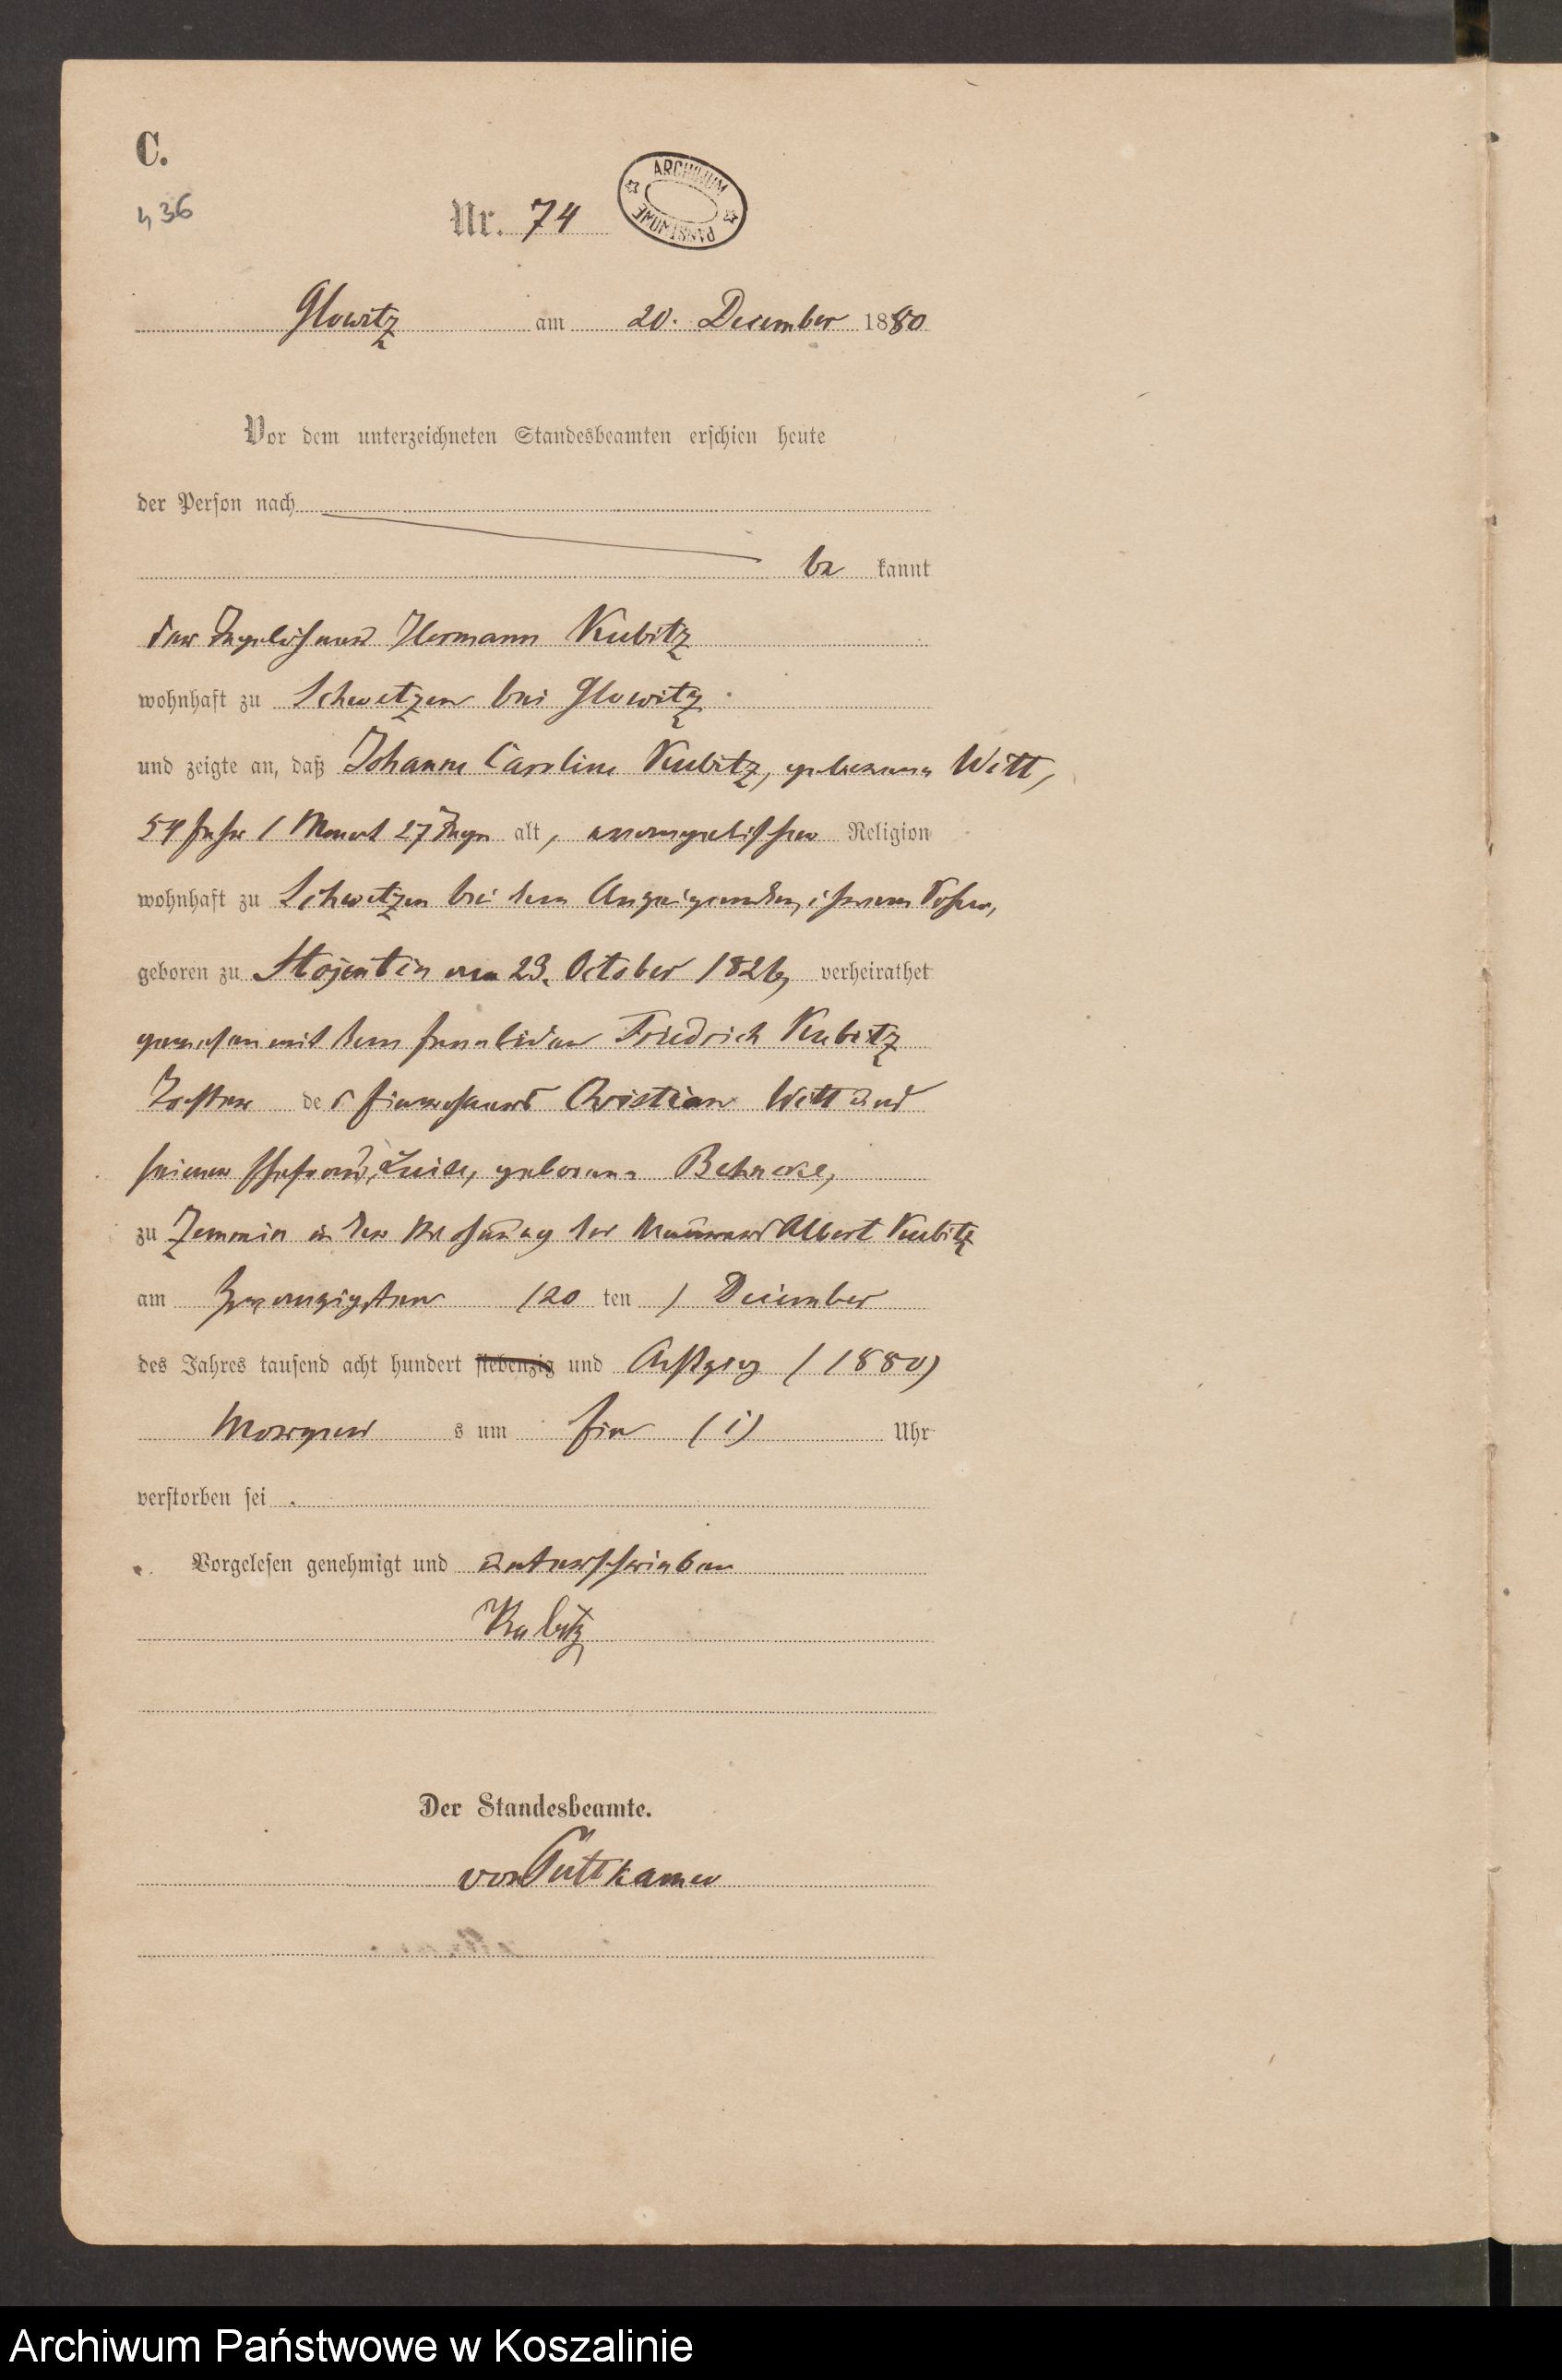 C.
436
Nr. 74
ARCHIWUM PAŃSTWOWE
Glowitz am 20. December 1880
Vor dem unterzeichneten Standesbeamten erschien heute
der Person nach
be kannt
der Tagelöhner Hermann Kubitz
wohnhaft zu Schwetzen bei Glowitz
und zeigte an, daß Johanne Caroline Kubitz, geborene Witt,
54 Jahr 1 Monat 27 Tage alt, evangelischer Religion
wohnhaft zu Schwetzen bei dem Anzeigenden, ihrem Sohne,
geboren zu Stojentin am 23. October 1826, verheirathet
gewesen mit dem Invaliden Friedrich Kubitz
Tochter de s Einwohners Christian Witt und
seiner Ehefrau, Luise, geborene Behncke,
zu Zemmin in der Wohnung des Maurers Albert Kubitz
am zwanzigsten (20 ten ) December
des Jahres tausend acht hundert siebenzig und Achtzig (1880)
Morgen s um Ein (1) Uhr
verstorben sei .
Vorgelesen genehmigt und unterschrieben
Kubitz
Der Standesbeamte.
von Puttkamer
Archiwum Państwowe w Koszalinie